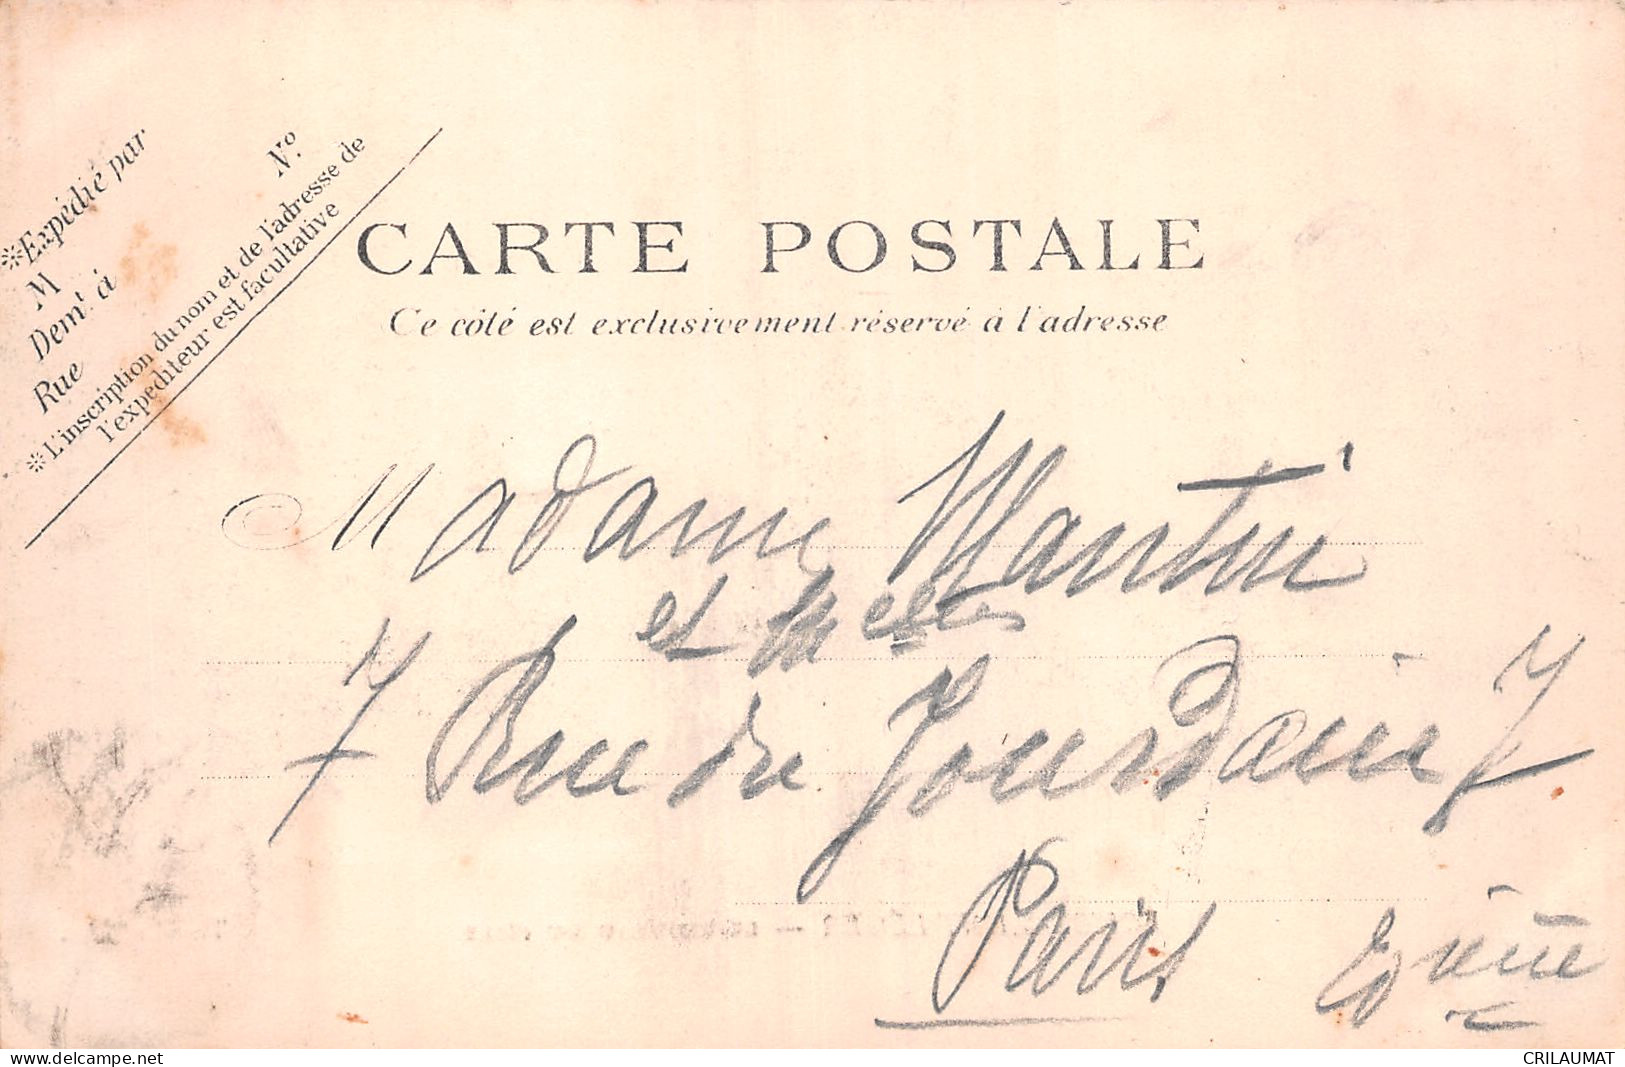 ※Expédié par
M
Demt. à
Rue
No.
※L'inscription du nom et de l'adresse de
l'expéditeur est facultative
CARTE POSTALE
Ce côté est exclusivement réservé à l'adresse
Madame Martin
et
7 Rue du Jourdain 7
Paris 20ième
www.delcampe.net
CRILAUMAT